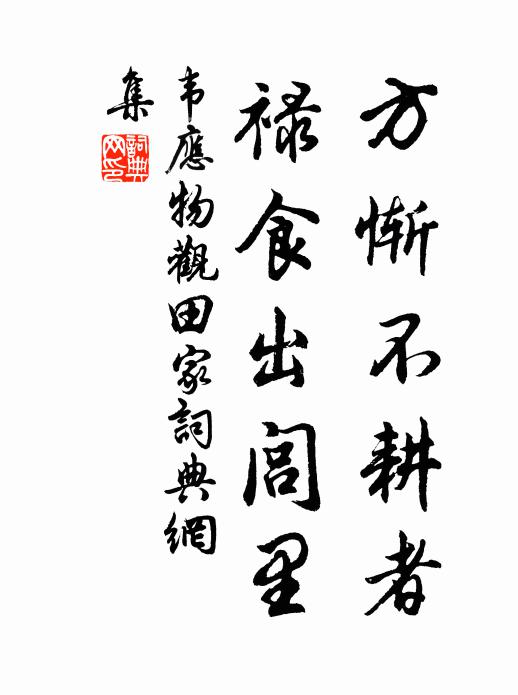 方惭不耕者
禄食出闾里
韦應物觀田家詞典網
集
詞典
网印